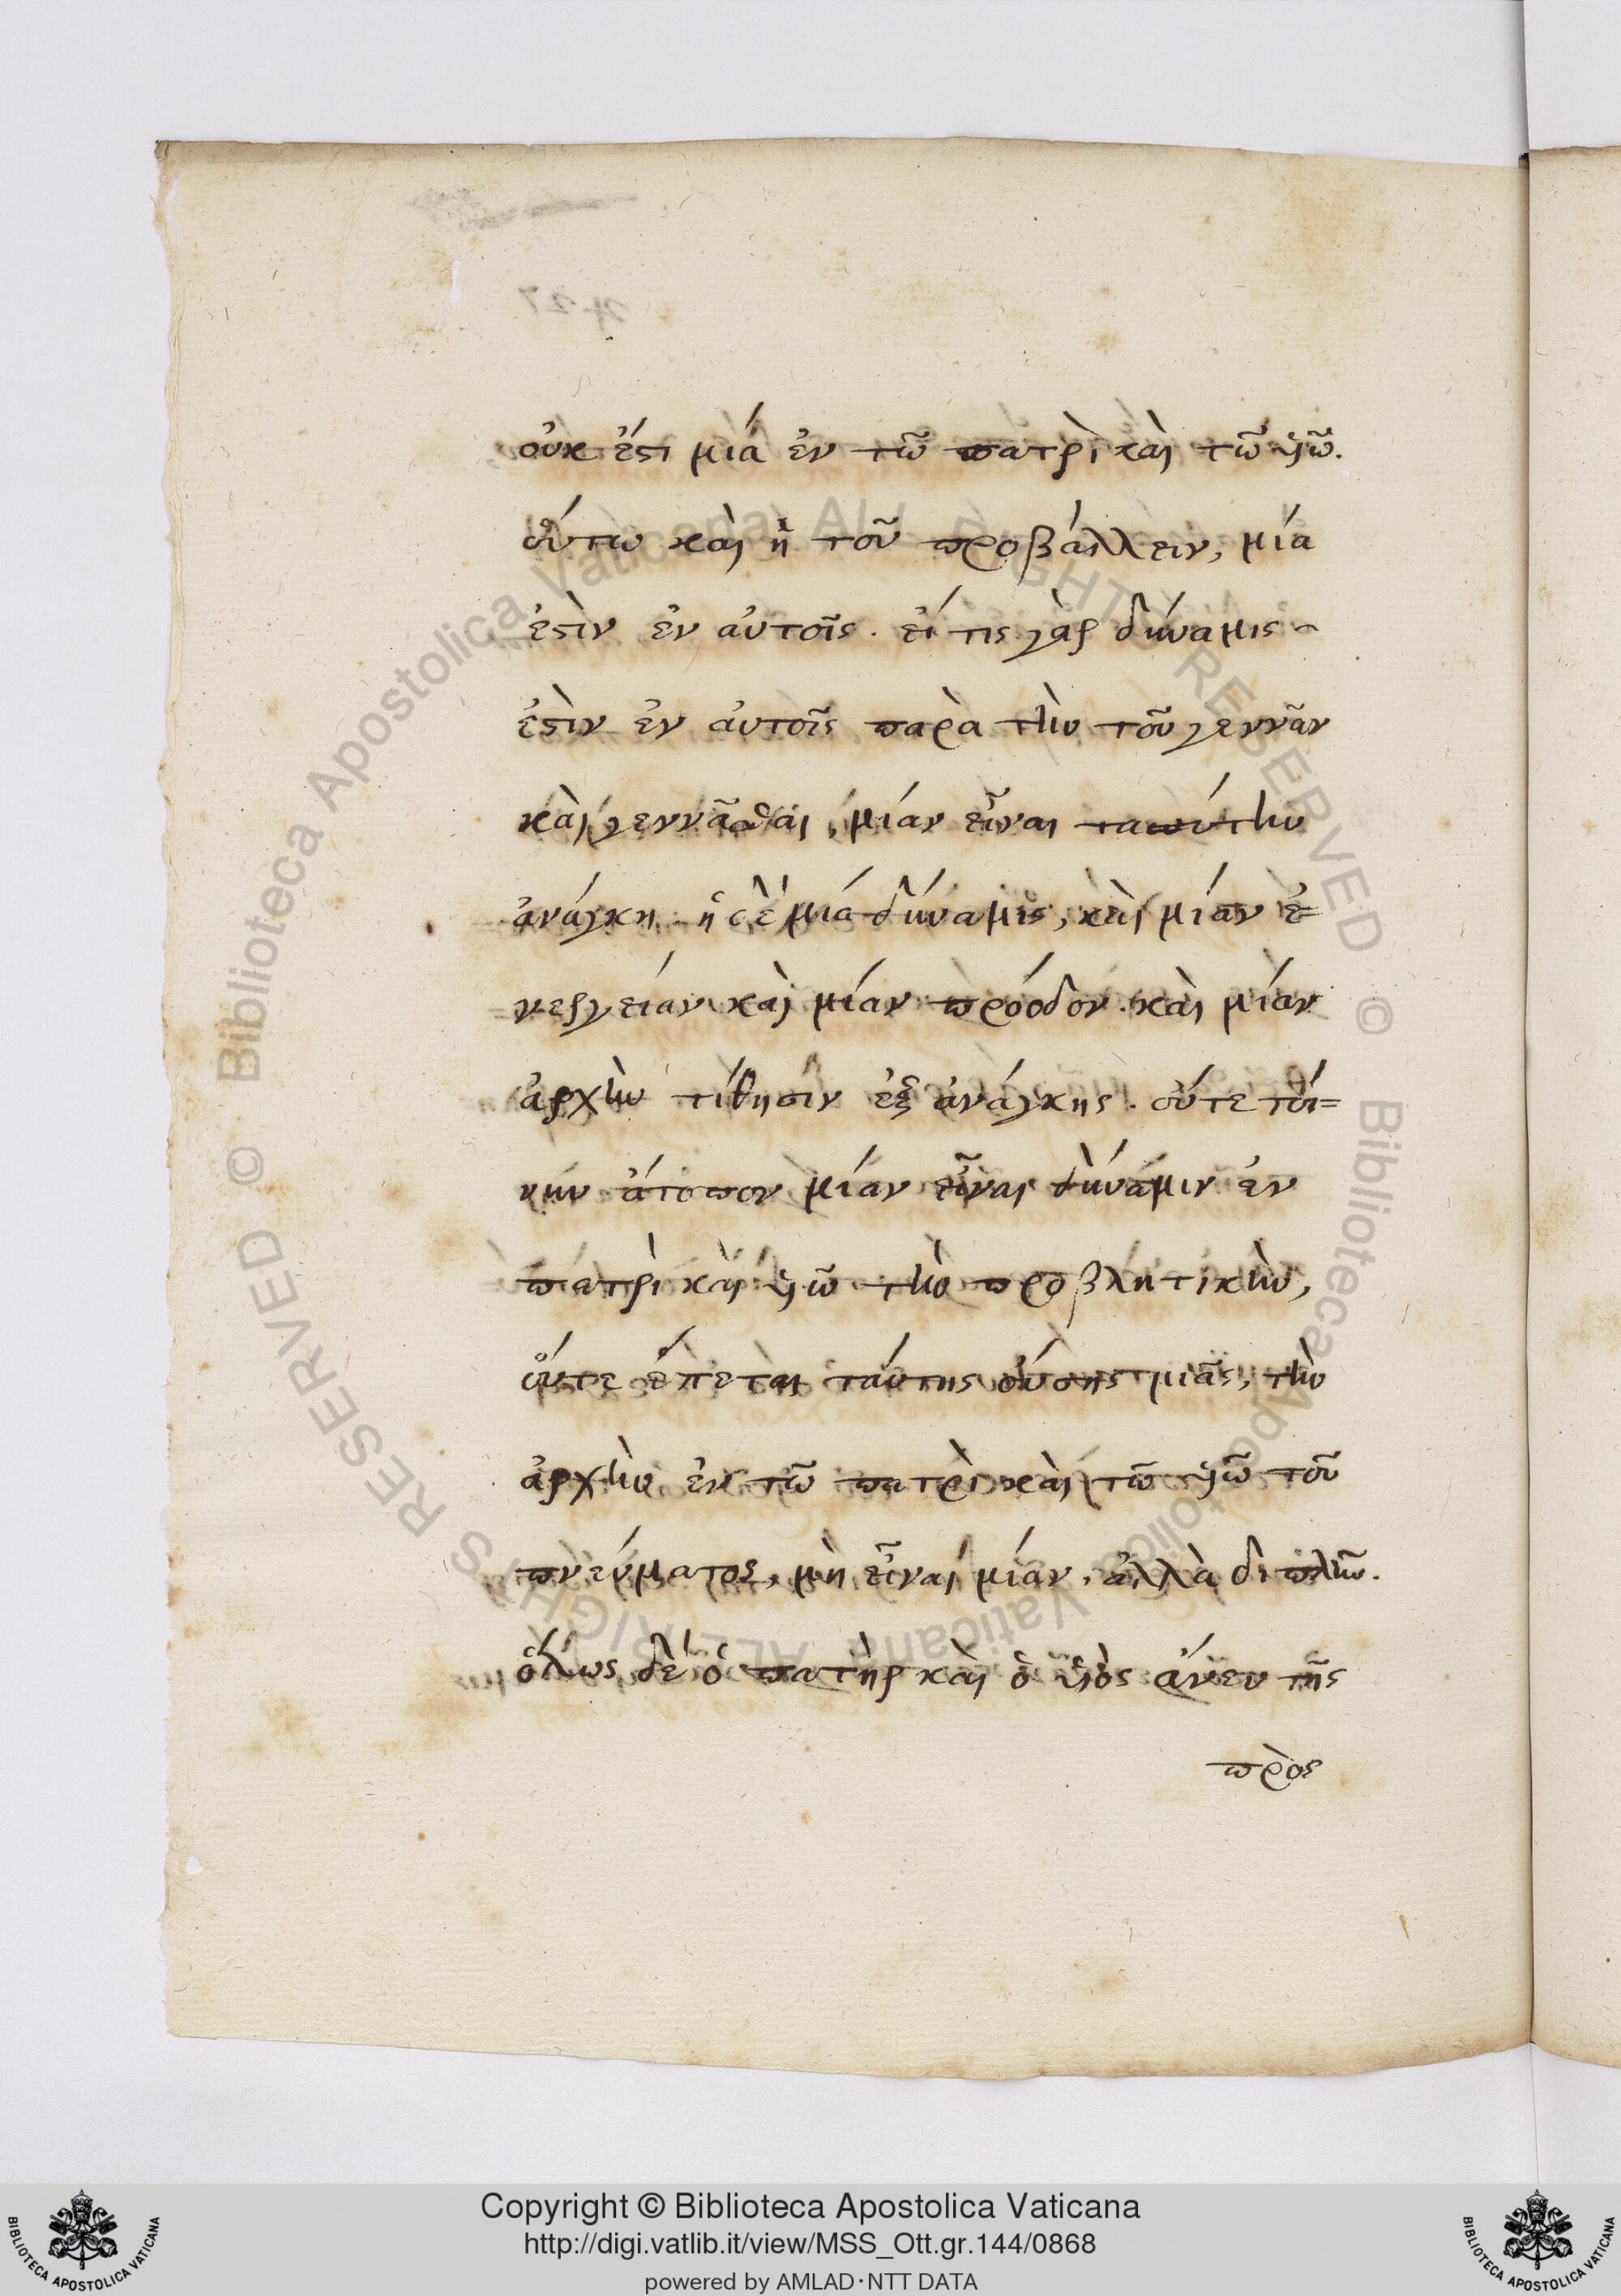 οὐκ ἔστι μία ἐν τῶ πατρὶ καὶ τῶ υἱῶ.
οὕτω καὶ ἡ τοῦ προβάλλειν, μία
ἐστὶν ἐν αὐτοῖς. εἴ τις γὰρ δύναμις
ἐστὶν ἐν αὐτοῖς παρὰ τὴν τοῦ γεννᾶν
καὶ γεννᾶσθαι, μίαν εἶναι ταύτην
ἀνάγκη. ἡ δὲ μία δύναμις, καὶ μίαν ἐ=
νεργείαν καὶ μίαν πρόοδον. καὶ μίαν
ἀρχὴν τίθησιν ἐξ ἀνάγκης. οὔτε τοί=
νυν ἄτοπον μίαν εἶναι δύναμιν ἐν
πατρὶ καὶ υἱῶ τὴν προβλητικὴν,
οὔτε ἕπεται ταύτης οὔσης μιᾶς, τὴν
ἀρχὴν ἐν τῶ πατρὶ καὶ τῶ υἱῶ τοῦ
πνεύματος, μὴ εἶναι μίαν, ἀλλὰ διπλῆν.
ὅλως δὲ ὁ πατὴρ καὶ ὁ υἱὸς ἄνευ τῆς
πρὸς
© Biblioteca Apostolica Vaticana ALL RIGHTS RESERVED © Biblioteca Apostolica Vaticana ALL RIGHTS RESERVED
Copyright © Biblioteca Apostolica Vaticana
http://digi.vatlib.it/view/MSS_Ott.gr.144/0868
powered by AMLAD·NTT DATA
BIBLIOTECA APOSTOLICA VATICANA
BIBLIOTECA APOSTOLICA VATICANA